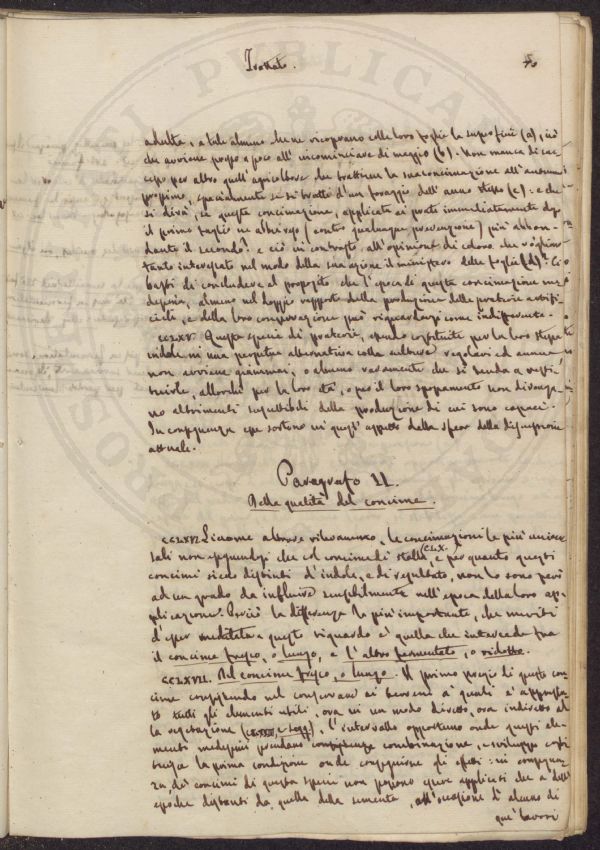 Trattato.
adulta, a tale almeno che ne ricoprano colle loro foglie la superficie (a), ciò
che avviene presso a poco all' incominciare di maggio (b). Non manca di suc-
cesso per altro quell' agricoltore che trattiene la sua concimazione all' autunno
prossimo, specialmente se si tratti d'un foraggio dell' anno stesso (c). e che
si dirà, se questa concimazione, applicata ai prati immediatamente dopo
il primo taglio ne accresce (contro qualunque prevenzione) più abbon-
dante il secondo? e ciò in contrasto all' opinione di coloro che vogliono
tanto interessato nel modo della sua azione il ministero delle foglie (d)? Ci
basti di concludere al proposito che l' epoca di questa concimazione
, almeno nel doppio rapporto della produzione delle praterie artifi-
ciali, e della loro conservazione può riguardarsi come indifferente.
CCLXV. Questa specie di praterie, essendo costituite per la loro stessa
indole in una perpetua alternativa colle culture regolari ed annue,
non avviene giammai, o almeno raramente che si tenda a resti-
tuirle, allorchè per la loro età, o per il loro spossamento non divenga-
no altrimenti suscettibili della produzione di cui sono capaci.
In conseguenza esse sortono in quest' aspetto dalla sfera della discussione
attuale.
Paragrafo II.
Della qualità del concime.
CCLXVI. Siccome altrove rilevammo, le concimazioni le più univer-
sali non eseguendosi che col concime di stalla, (CLX.) e per quanto questi
concimi sieno distinti d' indole, e di resultato, non lo sono però
ad un grado da influire sensibilmente nell' epoca della loro ap-
plicazione. Perciò la differenza la più importante, che meriti
d'esser meditata a questo riguardo è quella che intercede fra
il concime fresco, o lungo, e l' altro fermentato, o ridotto.
CCLXVII. Del concime fresco, o lungo. Il primo pregio di questo con-
cime consistendo nel conservare ai terreni a' quali è appresta-
to tutti gli elementi utili, ora in un modo diretto, ora indiretto al-
la vegetazione, l' intervallo opportuno onde questi ele-
menti medesimi prendano combinazione, e sviluppo costi-
tuisce la prima condizione onde conseguirne gli effetti: in conseguen-
za, de' concimi di questa specie non possono essere applicati che a delle
epoche distanti da quella della sementa, all' occasione d' alcuno di
que' lavori